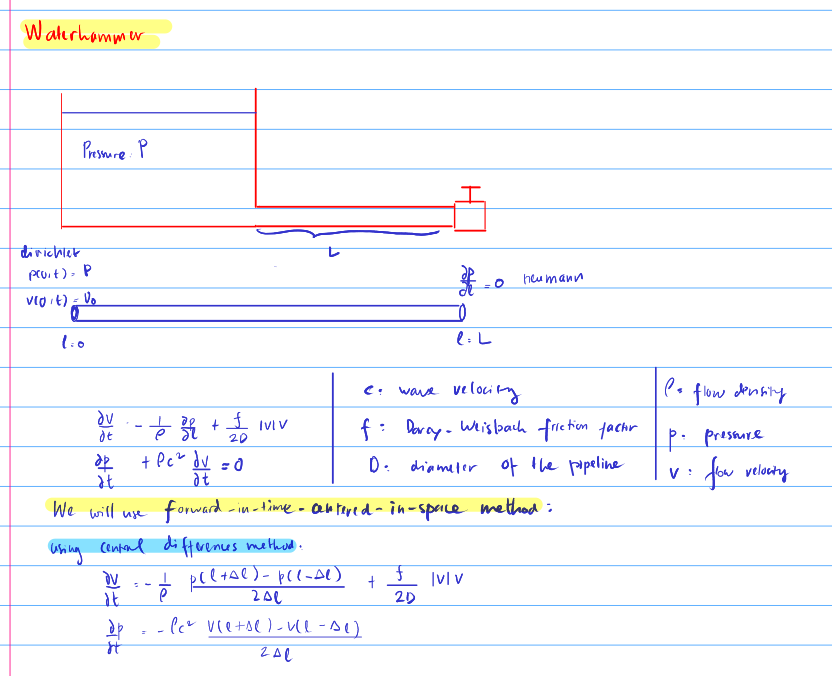 Waterhammer
Pressure: P
L
dirichlet
p(0,t) = P
v(0,t) = V₀
∂p/∂l = 0 neumann
l=0
l=L
∂v/∂t = - 1/ρ ∂p/∂l + f/2D |v|v
∂p/∂t + ρc² ∂v/∂t = 0
c: wave velocity
f: Darcy-Weisbach friction factor
D: diameter of the pipeline
ρ: flow density
p: pressure
v: flow velocity
We will use forward-in-time-centered-in-space method:
using central differences method.
∂v/∂t = - 1/ρ p(l+Δl) - p(l-Δl)/2Δl + f/2D |v|v
∂p/∂t = - ρc² v(l+Δl) - v(l-Δl)/2Δl